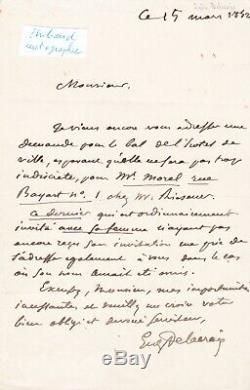 Ce 15 mars
Monsieur,
Je viens encore vous adresser une
demande pour le bal de l'hotel de
ville, esperant qu'elle ne sera pas trop
indiscrète, pour Mr. Morel rue
Bayart no. 1 chez Mr. Riesener
ce dernier qui est ordinairement
invité avec sa femme n'ayant pas
encore reçu son invitation me prie de
s'adresser également à vous dans le cas
où son nom aurait été omis.
Excusez, Monsieur, mes importunités
incessantes et veuillez me croire votre
bien obligé et dévoué serviteur,
Eug Delacroix